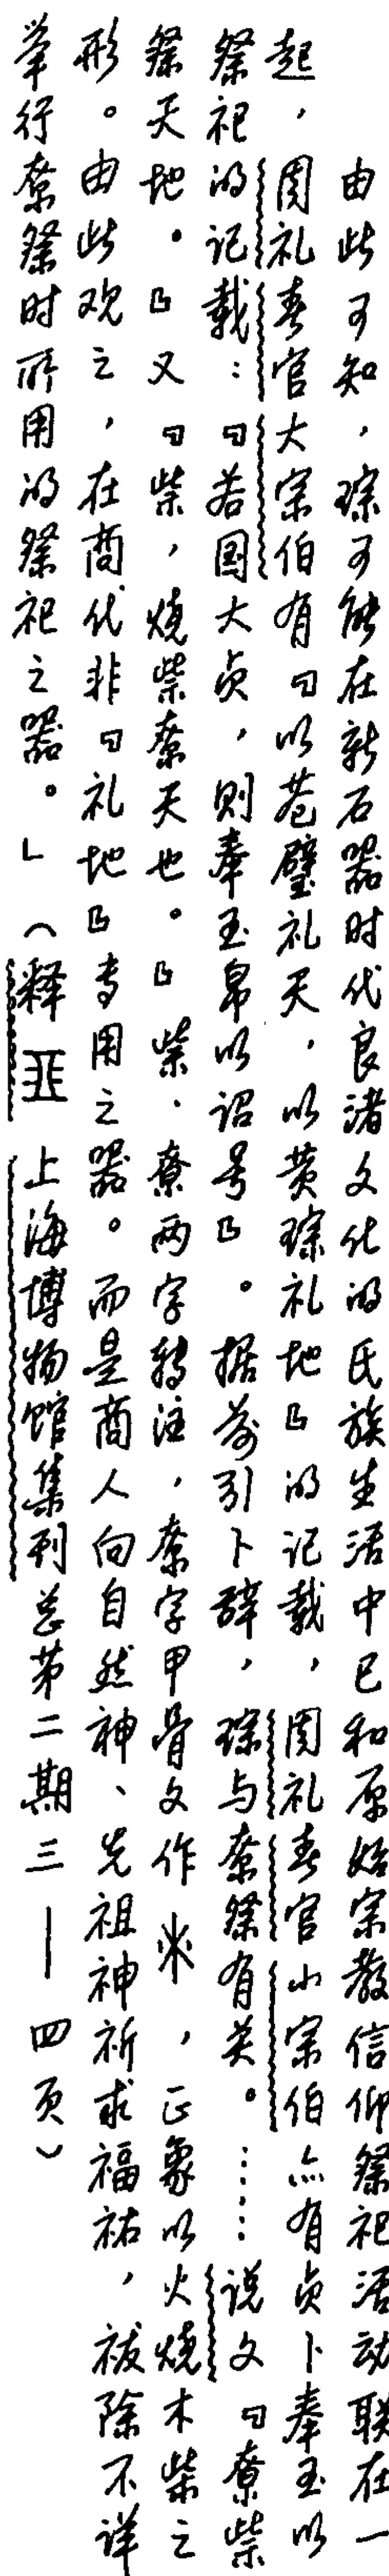 由此可知，琮可能在新石器时代良渚文化的氏族生活中已和原始宗教信仰祭祀活动联在一
起，周礼春官大宗伯有『以苍璧礼天，以黄琮礼地』的记载，周礼春官小宗伯亦有贞卜奉玉以
祭祀的记载：『若国大贞，则奉玉帛以诏号』。据前引卜辞，琮与尞祭有关。……说文『尞柴
祭天地。』又『柴，烧柴尞天也。』柴、尞两字转注，尞字甲骨文作，正象以火烧木柴之
形。由此观之，在商代非『礼地』专用之器。而是商人向自然神、先祖神祈求福祐，祓除不详
举行尞祭时所用的祭祀之器。」（释 上海博物馆集刊总第二期三—四页）